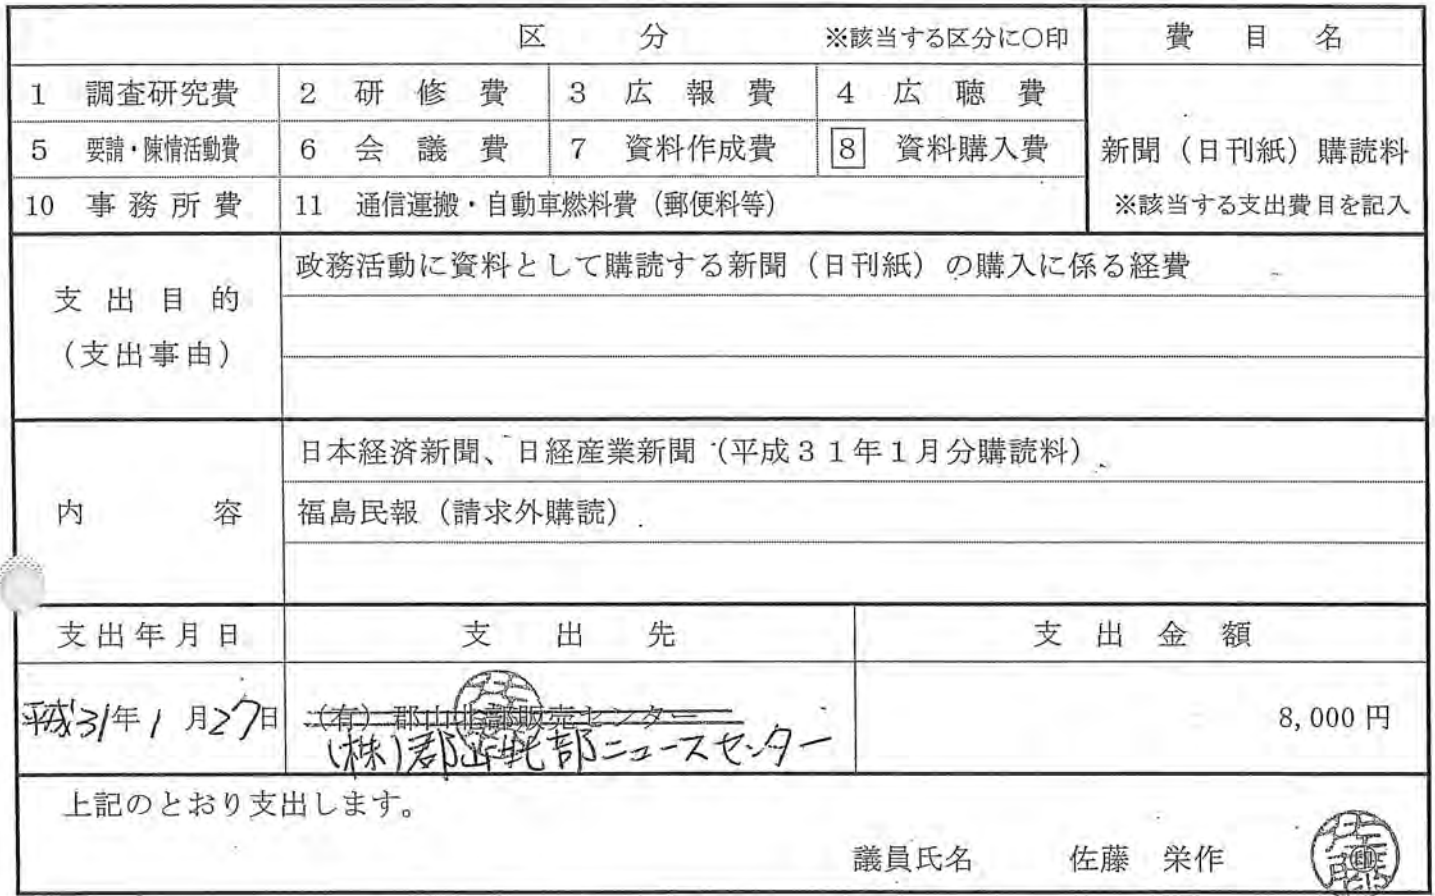 区　分　※該当する区分に○印　費　目　名
1　調査研究費　2　研　修　費　3　広　報　費　4　広　聴　費
5　要請・陳情活動費　6　会　議　費　7　資料作成費　8　資料購入費　新聞（日刊紙）購読料
10　事務所費　11　通信運搬・自動車燃料費（郵便料等）　※該当する支出費目を記入
支出目的　政務活動に資料として購読する新聞（日刊紙）の購入に係る経費
（支出事由）
日本経済新聞、日経産業新聞（平成３１年１月分購読料）
内　容　福島民報（請求外購読）
支出年月日　支　出　先　支　出　金　額
平成31年1月27日　（有）郡山北部販売センター　8,000円
（株）郡山北部ニュースセンター
上記のとおり支出します。
議員氏名　佐藤　栄作